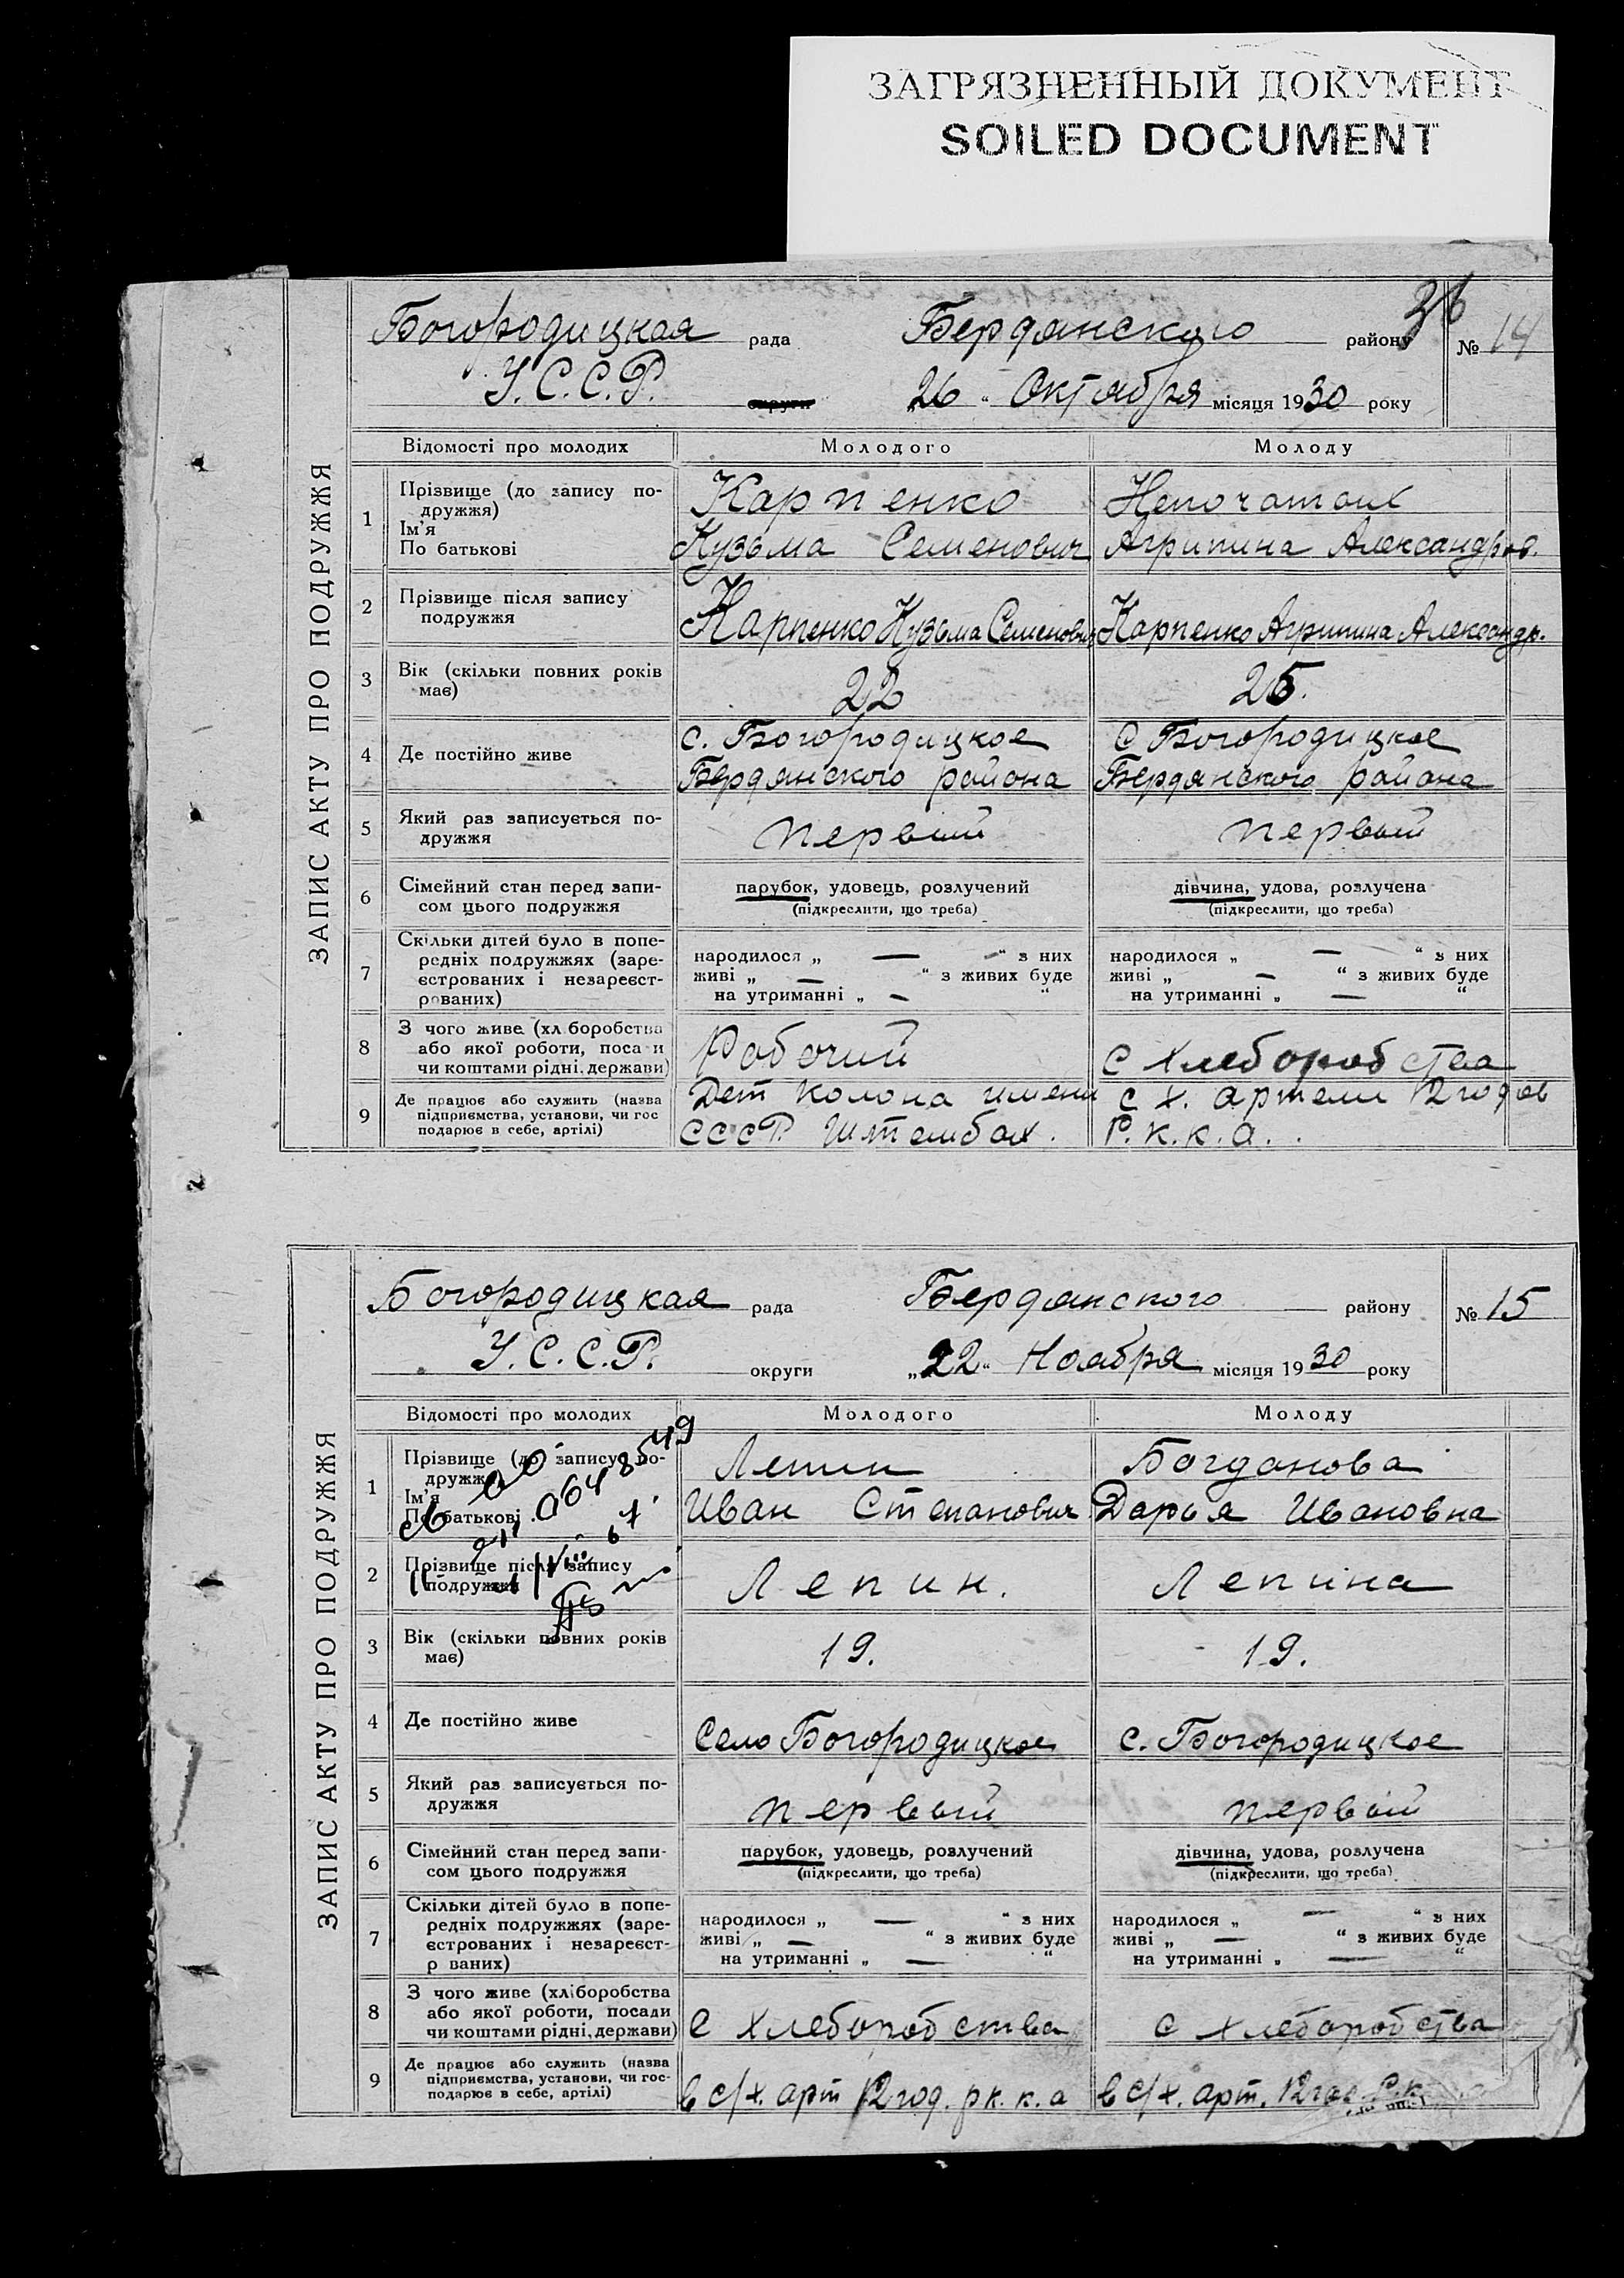 ЗАГРЯЗНЕННЫЙ ДОКУМЕНТ
SOILED DOCUMENT
36
ЗАПИС АКТУ ПРО ПОДРУЖЖЯ
Богородицкая рада Бердянского району № 14
У.С.С.Р. округи „26“ Октября місяця 1930 року
Відомості про молодих Молодого Молоду
1 Прізвище (до запису по-
дружжя) Карпенко Непочатых
Ім'я
По батькові Кузьма Семенович Агрипина Александров.
2 Прізвище після запису
подружжя Карпенко Кузьма Семенович Карпенко Агрипина Александр.
3 Вік (скільки повних років
має) 22 25.
с. Богородицкое С Богородицкое
4 Де постійно живе
Бердянского района Бердянского района
5 Який раз записується по-
дружжя первый первый
6 Сімейний стан перед запи- парубок, удовець, розлучений дівчина, удова, розлучена
сом цього подружжя (підкреслити, що треба) (підкреслити, що треба)
Скільки дітей було в попе-
7 редніх подружжях (заре- народилося „ — “ з них народилося „ — “ з них
єстрованих і незареєст- живі „ — “ з живих буде живі „ — “ з живих буде
рованих) на утриманні „ — “ на утриманні „ — “
З чого живе (хл боробства
8 або якої роботи, поса и Рабочий с хлеборобства
чи коштами рідні, держави)
9 Де працює або служить (назва Дет Колона имени с х. артели 12 годов
підприємства, установи, чи гос
подарює в себе, артілі) СССР. Р.К.К.А.
ЗАПИС АКТУ ПРО ПОДРУЖЖЯ
Богородицкая рада Бердянского району № 15
У.С.С.Р. округи „22“ Ноября місяця 1930 року
Відомості про молодих Молодого Молоду
1 Прізвище (до запису по-
дружжя) Лепин Богданова
Ім'я
По батькові Иван Степанович Дарья Ивановна
2 Прізвище після запису
подружжя Лепин. Лепина
3 Вік (скільки повних років
має) 19. 19.
4 Де постійно живе Село Богородицкое с. Богородицкое
5 Який раз записується по-
дружжя первый первый
6 Сімейний стан перед запи- парубок, удовець, розлучений дівчина, удова, розлучена
сом цього подружжя (підкреслити, що треба) (підкреслити, що треба)
Скільки дітей було в попе-
7 редніх подружжях (заре- народилося „ — “ з них народилося „ — “ з них
єстрованих і незареєст- живі „ — “ з живих буде живі „ — “ з живих буде
р ваних) на утриманні „ — “ на утриманні „ — “
З чого живе (хліборобства
8 або якої роботи, посади с хлеборобства с хлеборобства
чи коштами рідні, держави)
9 Де працює або служить (назва
підприємства, установи, чи гос-
подарює в себе, артілі) в с/х. арт 12 год. р к. к. а в с/х. арт. 12 год. Р.к.